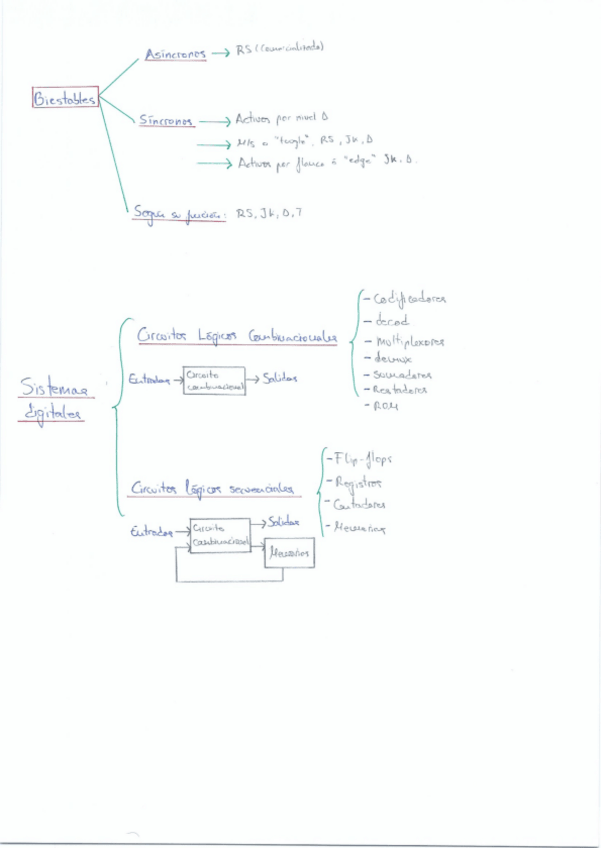 Asíncronos → RS (Comercializado)
Biestables
Síncronos → Activos por nivel D
→ M/S o "toogle", RS, JK, D
→ Activos por flanco o "edge" JK, D.
Según su función: RS, JK, D, T
Circuitos Lógicos Combinacionales
- Codificadores
- decod
- Multiplexores
- demux
- Sumadores
- Restadores
- ROM
Entradas → Circuito combinacional → Salidas
Sistemas
digitales
Circuitos lógicos secuenciales
- Flip-flops
- Registros
- Contadores
- Memorias
Entradas → Circuito combinacional → Salidas
Memorias